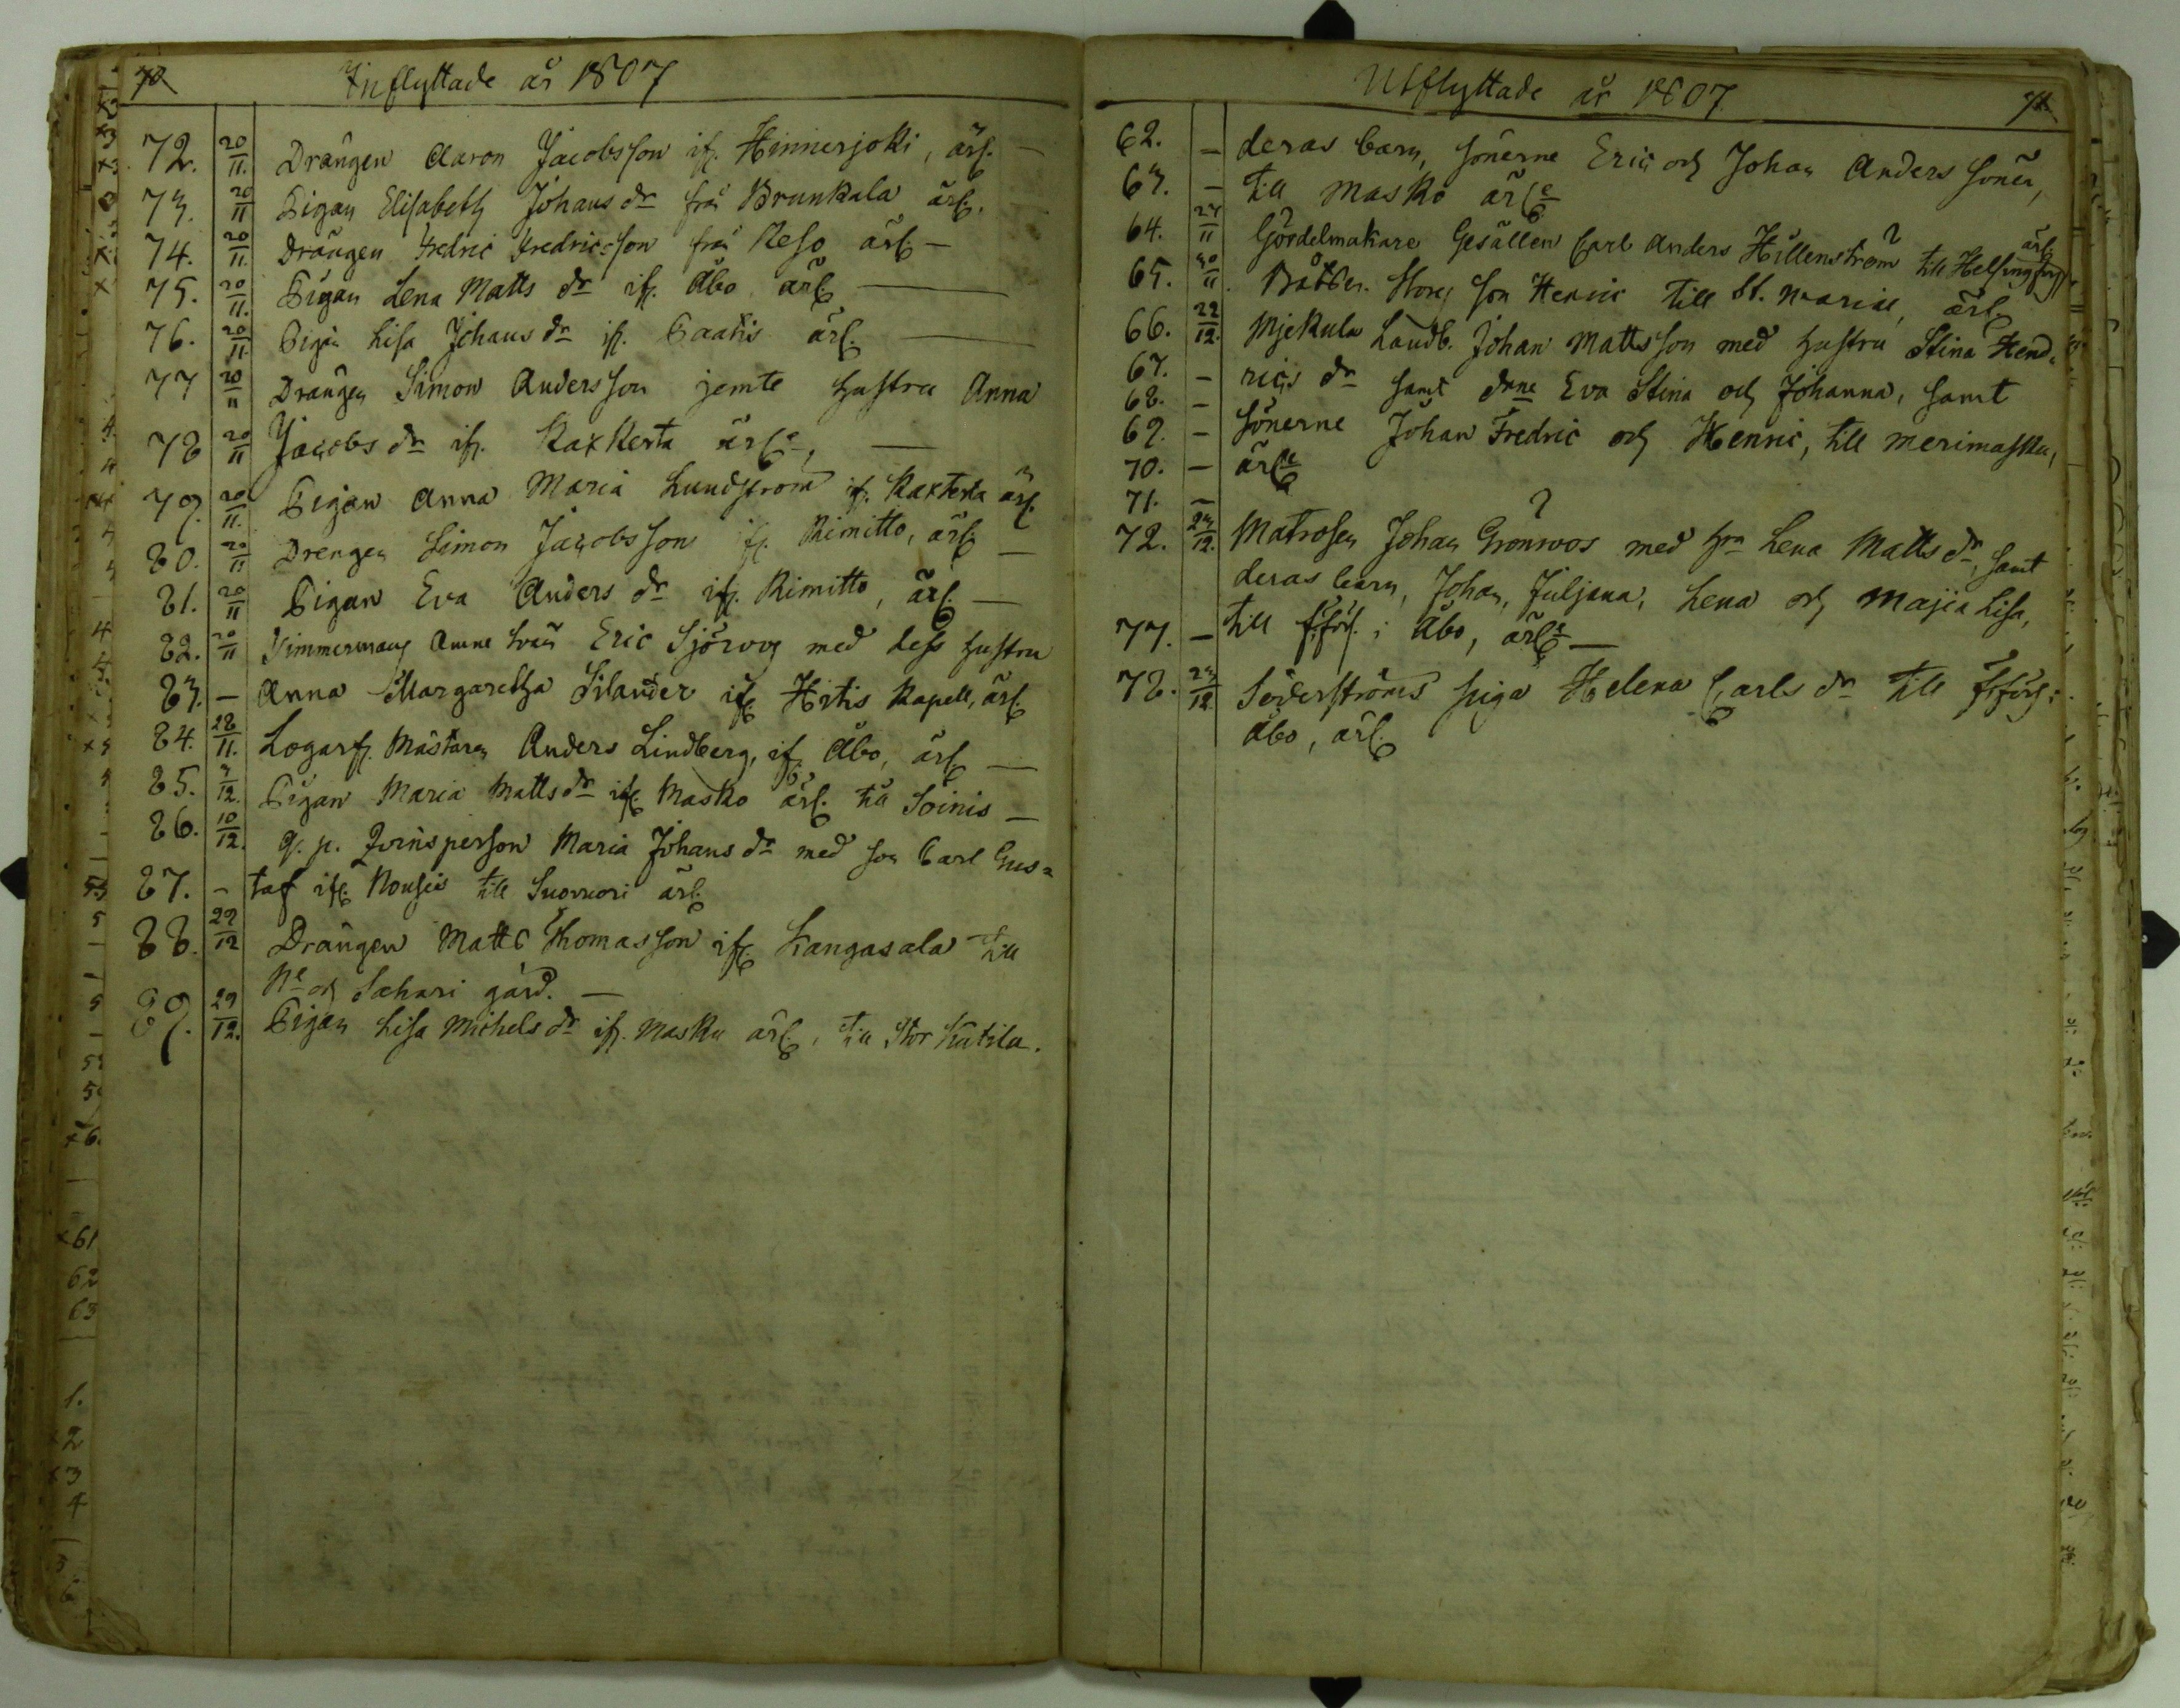 70
Inflyttade år 1807
72. 20/11. Drängen Aaron Jacobsson ifr. Hinnerjoki, ärl. —
73. 20/11 Pigan Elisabeth Johans dr från Brunkala ärl.
74. 20/11. Drängen Fredric Fredricsson från Reso ärl —
75. 20/11. Pigan Lena Matts dr ifr. Åbo ärl —
76. 20/11. Pigan Lisa Johans dr ifr. Paatis ärl. —
77 20/11 Drängen Simon Andersson jemte hustru Anna
78 20/11 Jacobs dr ifr. Kaxkerta ärle, —
79. 20/11. Pigan Anna Maria Lundström ifr. Kaxkerta ärl.
80. 20/11 Drengen Simon Jacobsson ifr. Rimitto, ärl —
81. 20/11 Pigan Eva Anders dr ifr. Rimitto, ärl —
82. 20/11 Timmerman Eric Sjöroos med dess hustru
83. — Anna Margaretha Silander ifr. Hitis Kapell, ärl.
84. 28/11. Mästaren Anders Lindberg, ifr Åbo, ärl —
85. 3/12. Pigan Maria Matts dr ifr. Masko ärl. till Soinis —
86. 10/12. q. p. Qvinsperson Maria Johans dr med son Carl Gus=
87. - taf ifr. Nousis till Suovuori ärl.
88. 29/12 Drängen Matts Thomasson ifr. Kangasala till
Ne och Sachari gård. —
89. 29/12. Pigan Lisa Michels dr ifr. Masku ärl., till Stor Kätila.
Utflyttade år 1807
71
62. — deras barn, sönerne Eric och Johan Anders söner,
63. — till Masko ärle
64. 24/11 Gördelmakare Gesällen Carl Anders Hillenström till Helsingfors ärl
65. 30/11. son Henric till St. Mariæ, ärl
66. 22/12. Mjekula Landb. Johan Mattsson med hustru Stina Hend=
67. — rics dr samt drne Eva Stina och Johanna, samt
68. —
69. — sönerne Johan Fredric och Henric, till Merimasku,
70. — ärle
71. —
72. 23/12. Matrosen Johan Grönroos med hru Lena Matts dr, samt
deras barn, Johan, Juljana, Lena och Majia Lisa,
77. — till F. förs. i Åbo, ärle —
78. 23/12 Söderströms piga Helena Carls dr till F. förs:
Åbo, ärl.